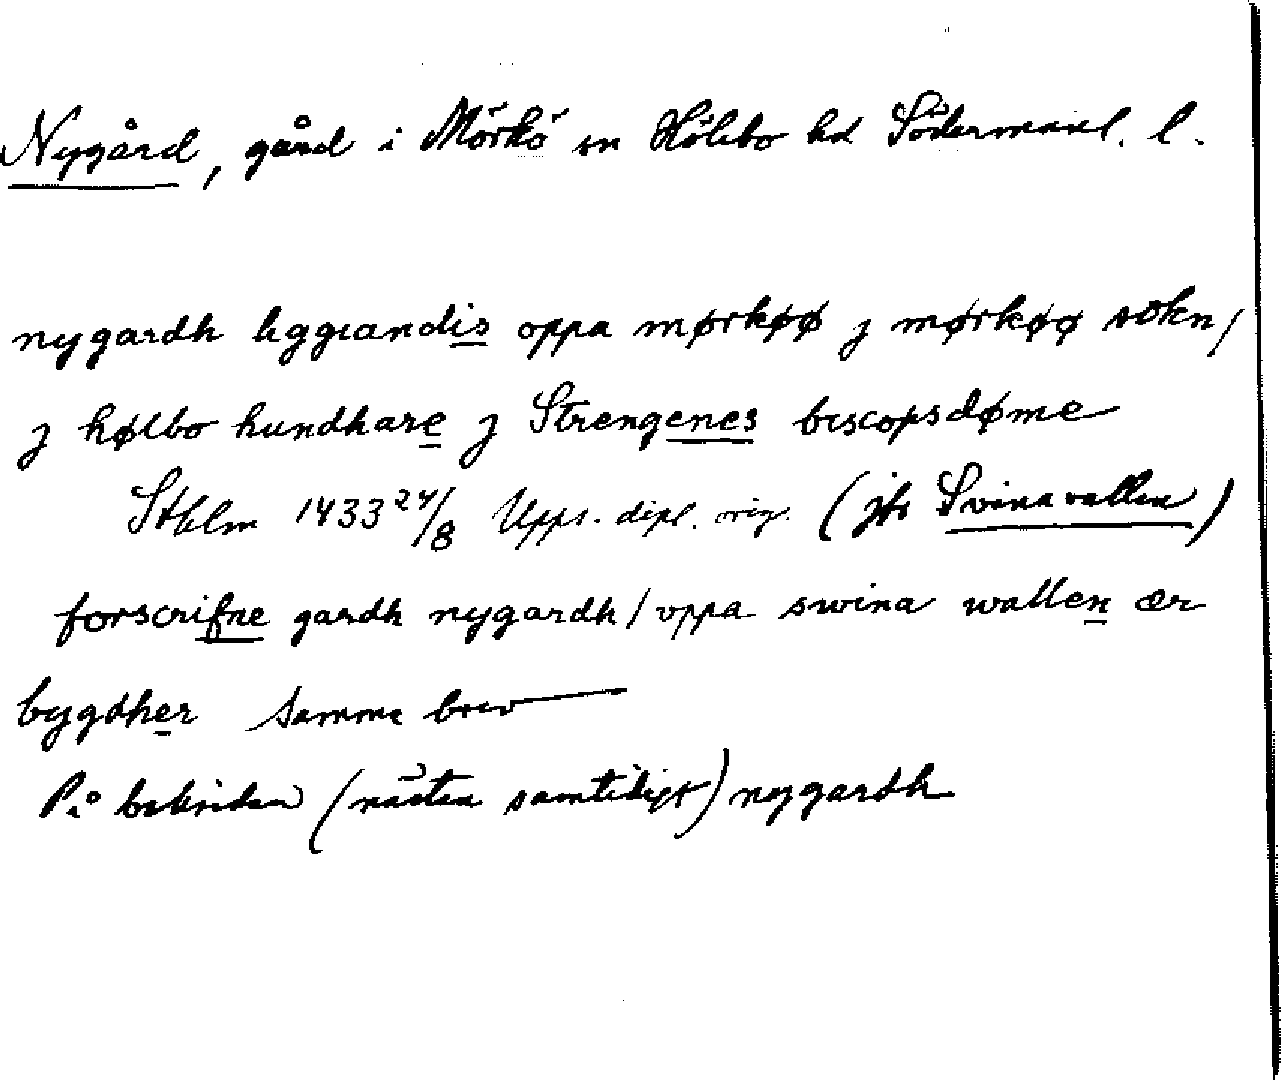 Nygård, gård i Mörkö sn Hölebo hd Södermanl. l.
nygardh liggiandis oppa mørkøø j mørkøø sokn/
j hølbo hundhare j Strengenes biscopsdøme
Sthlm 1433 24/8 Upps. dipl. orig. (jfr Svinavallen)
forscrifne gardh nygardh/ vppa swina wallen ær
bygdher samma brev
På baksidan (nästan samtidigt) nygardh